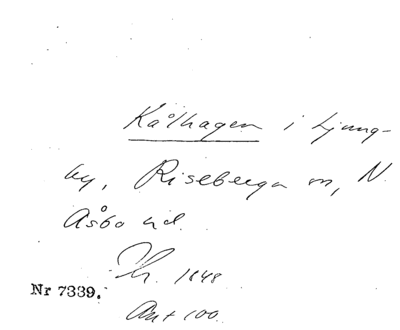 Kålhagen i Ljung-
by, Riseberga sn, N.
Åsbo hd.
Th. 1848
Nr 7339.
Ant 100.